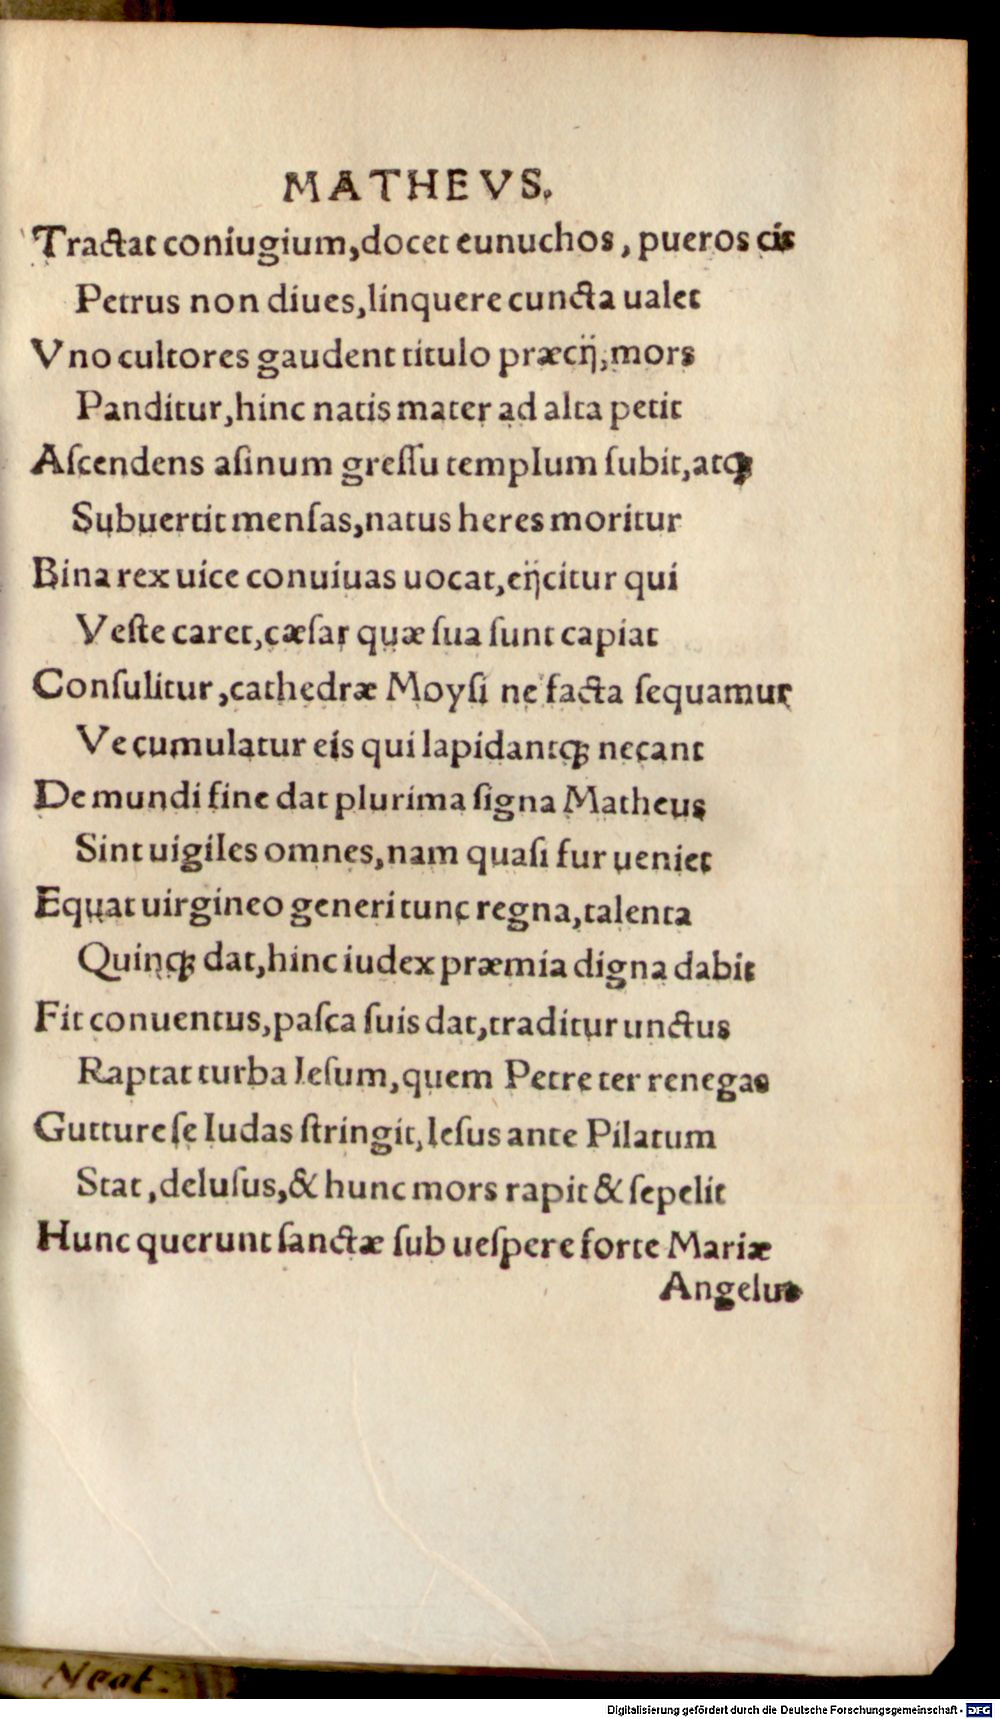 MATHEVS.
Tractat coniugium, docet eunuchos, pueros cis
Petrus non diues, linquere cuncta ualet
Vno cultores gaudent titulo præcij, mors
Panditur, hinc natis mater ad alta petit
Aſcendens aſinum greſſu templum ſubit, atqꝫ
Subuertit menſas, natus heres moritur
Bina rex uice conuiuas uocat, eijcitur qui
Veſte caret, cæſar quæ ſua ſunt capiat
Conſulitur, cathedræ Moyſi ne facta ſequamur
Ve cumulatur eis qui lapidantqꝫ necant
De mundi fine dat plurima ſigna Matheus
Sint uigiles omnes, nam quaſi fur ueniet
Equat uirgineo generi tunc regna, talenta
Quinqꝫ dat, hinc iudex præmia digna dabit
Fit conuentus, paſca ſuis dat, traditur unctus
Raptat turba Ieſum, quem Petre ter renegas
Gutture ſe Iudas ſtringit, Ieſus ante Pilatum
Stat, deluſus, & hunc mors rapit & ſepelit
Hunc querunt ſanctæ ſub ueſpere forte Mariæ
Angelus
Neot.
Digitalisierung gefördert durch die Deutsche Forschungsgemeinschaft - DFG